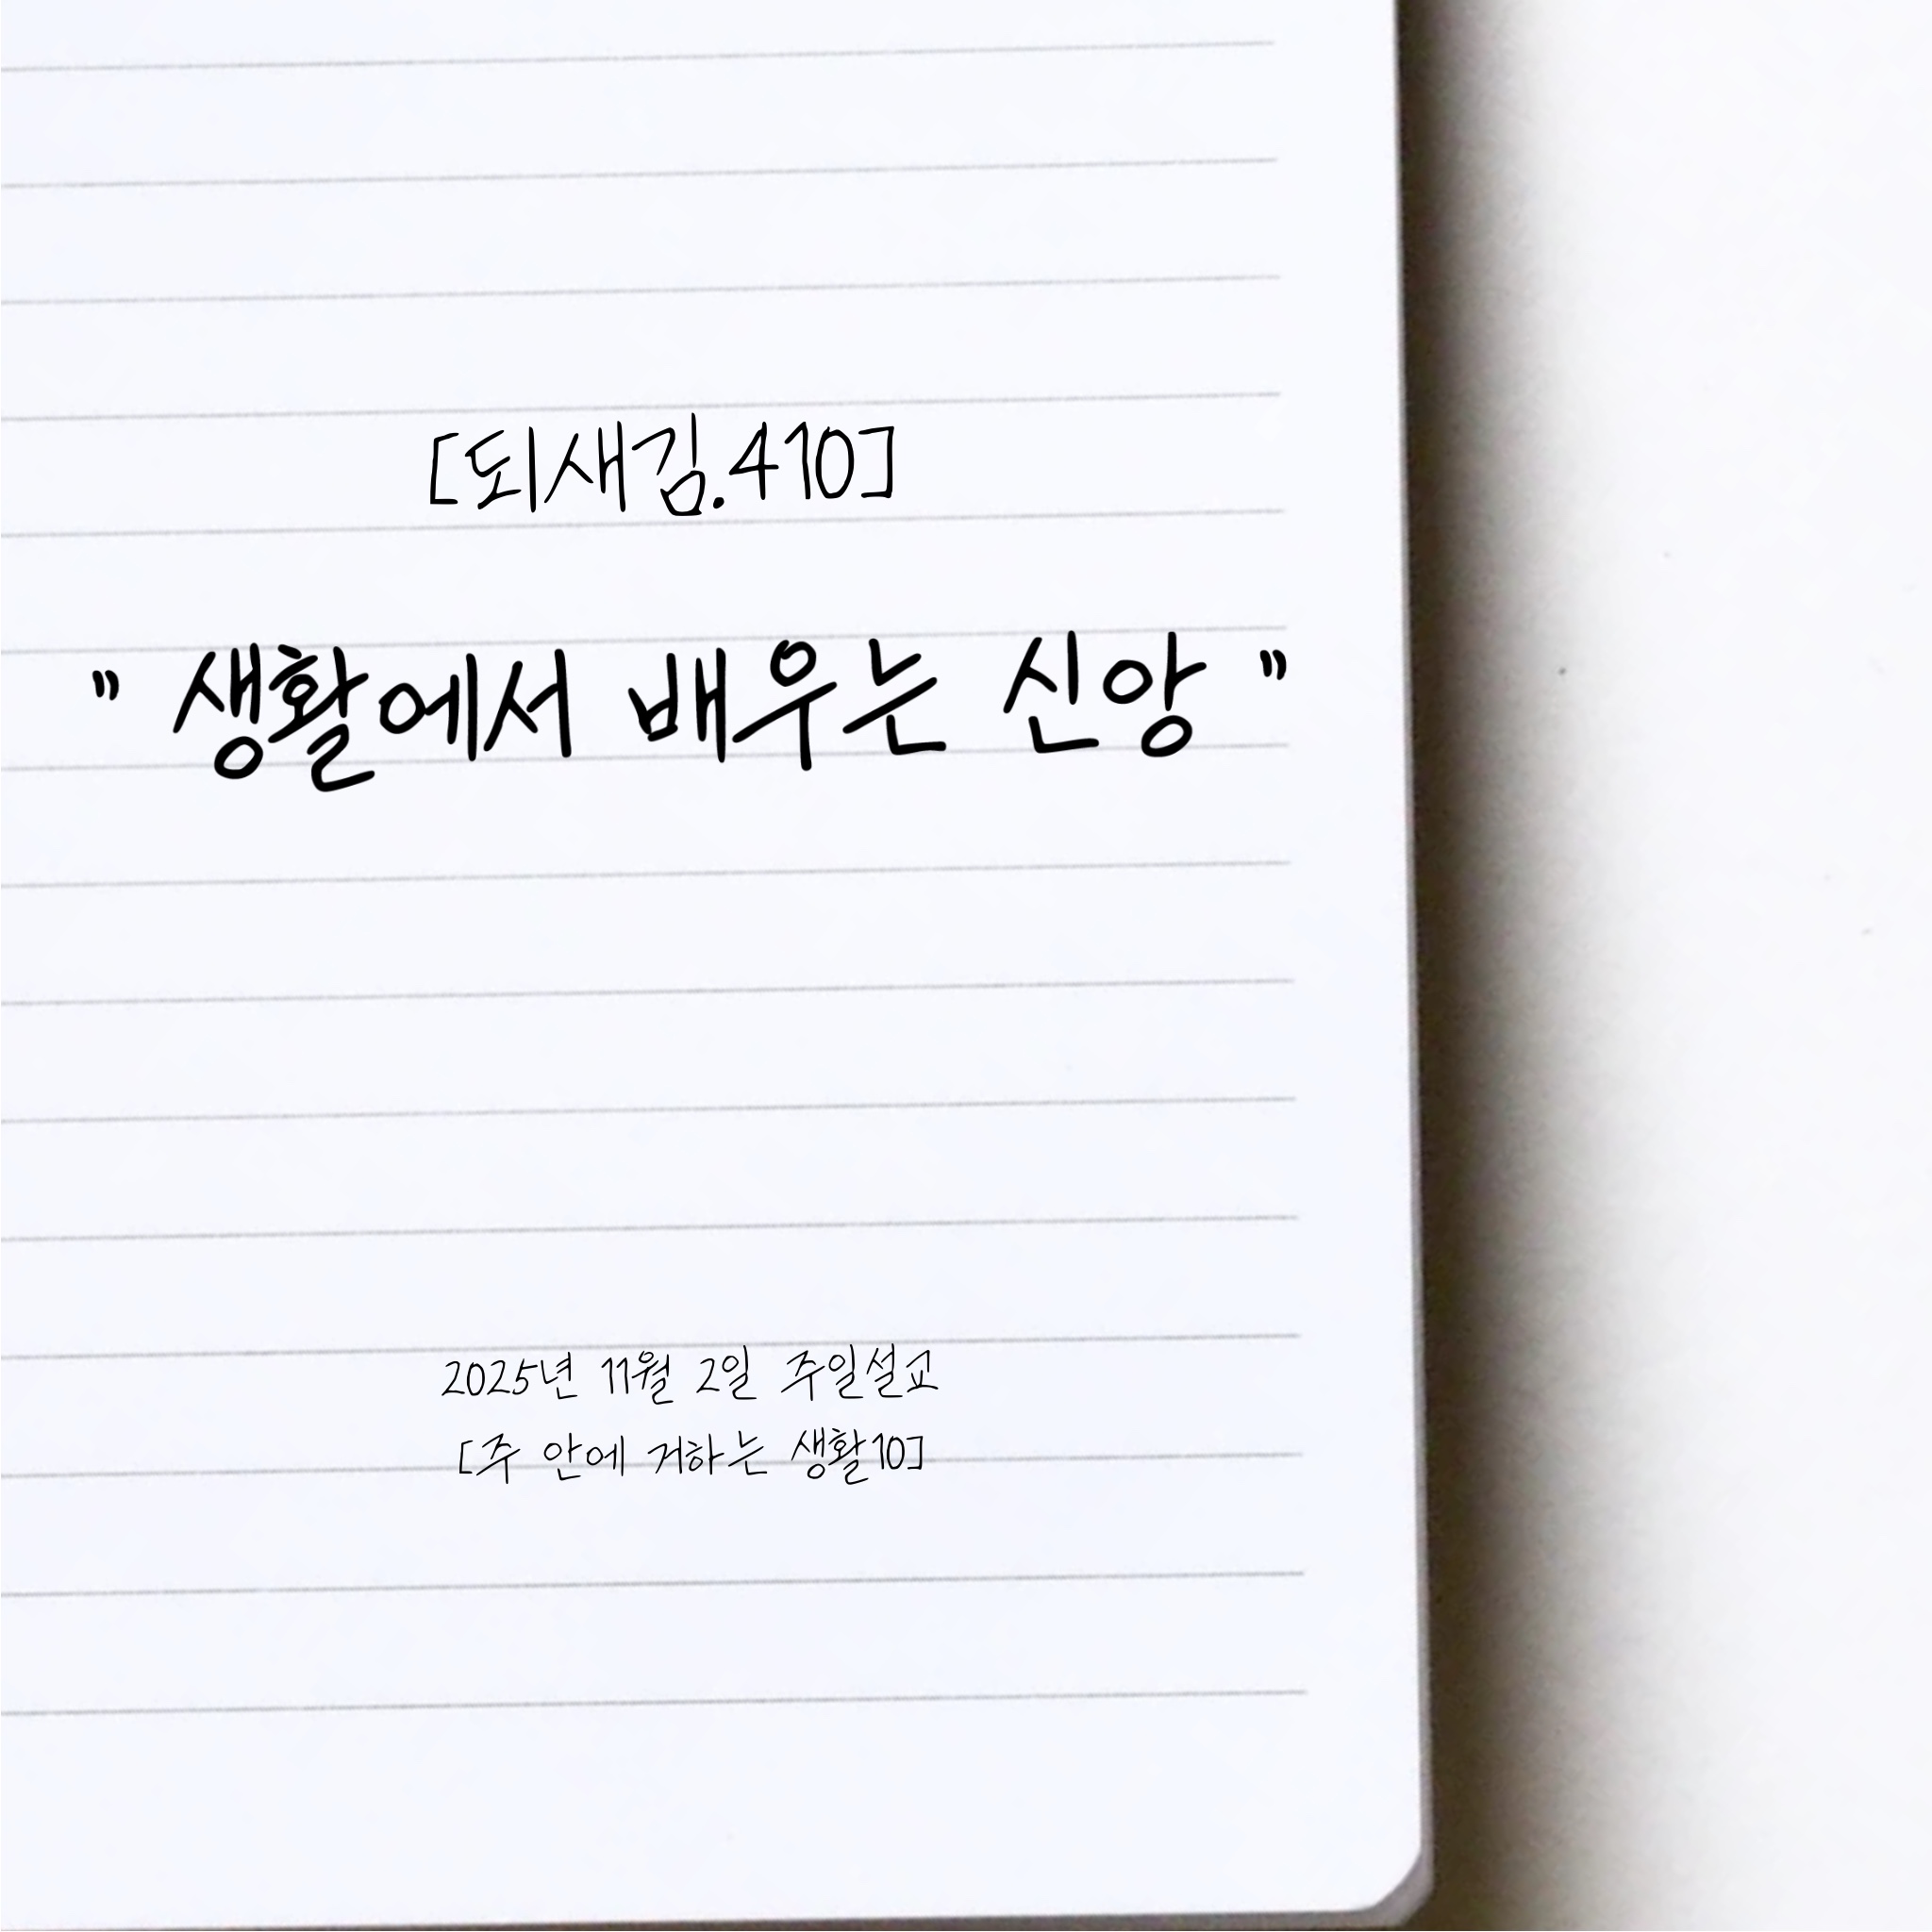 [되새김.410]
" 생활에서 배우는 신앙 "
2025년 11월 2일 주일설교
[주 안에 거하는 생활10]